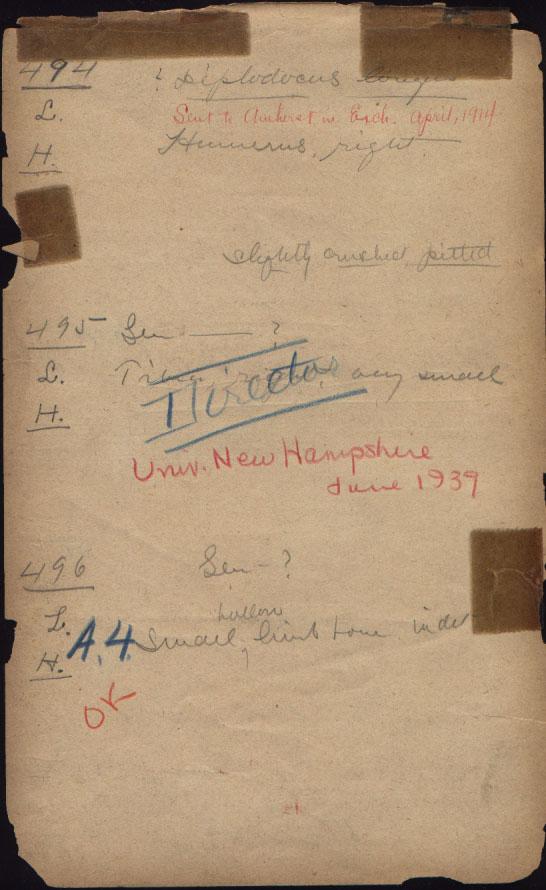 494 ? Diplodocus longus
L. Sent to Amherst in Exch. April, 1914
H. Humerus, right.
slightly crushed, pitted
495 Gen ——— ?
L. Tibia, very small
H.
Director
Univ. New Hampshire
June 1939
496 Gen - ?
hollow
L. A.4. Small, limb bone indet
H.
OK
21